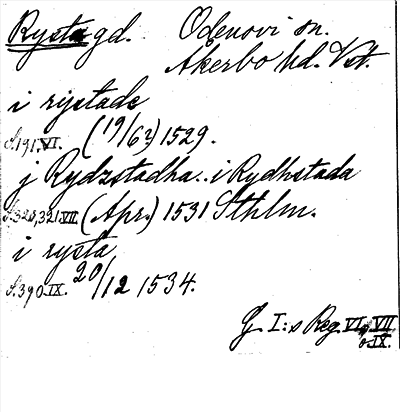 Rysta gd. Odensvi sn.
Åkerbo hd. Vstm.
i rijstade
S.191.VI. (19/6?) 1529.
j Rydzstadha.. i Rydhstada
S.320,321.VII. (Apr.) 1531 Sthlm.
i rysta
S.390.IX. 20/12 1534.
G. I:s Reg. VI, VII
o. IX.